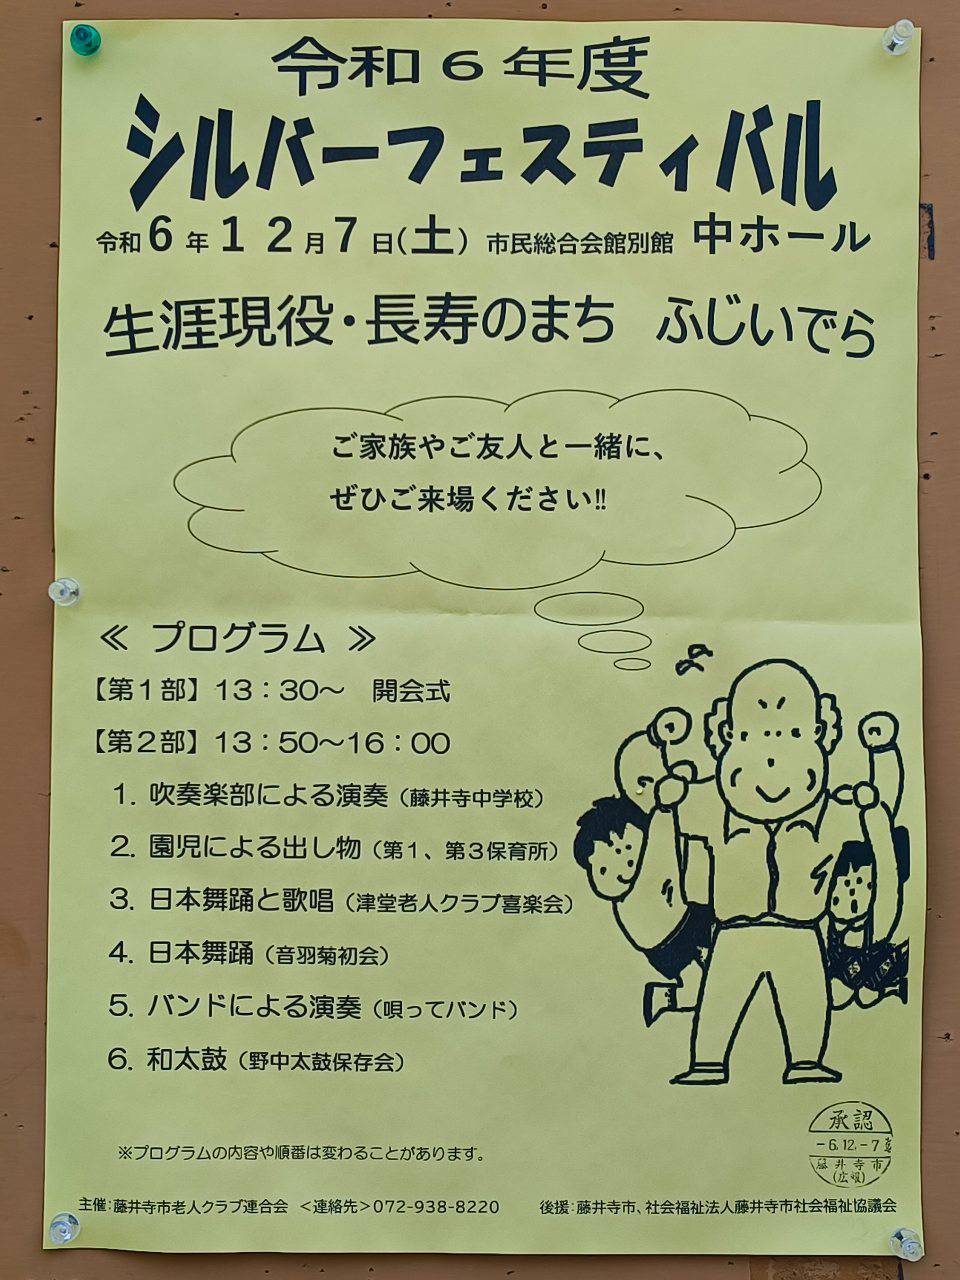 令和６年度
シルバーフェスティバル
令和6年12月7日(土) 市民総合会館別館 中ホール
生涯現役・長寿のまち ふじいでら
ご家族やご友人と一緒に、
ぜひご来場ください!!
≪ プログラム ≫
【第１部】13：30～ 開会式
【第２部】13：50～16：00
1. 吹奏楽部による演奏（藤井寺中学校）
2. 園児による出し物（第１、第３保育所）
3. 日本舞踊と歌唱（津堂老人クラブ喜楽会）
4. 日本舞踊（音羽菊初会）
5. バンドによる演奏（唄ってバンド）
6. 和太鼓（野中太鼓保存会）
承認
-6.12.-7まで
藤井寺市
(広報)
※プログラムの内容や順番は変わることがあります。
主催：藤井寺市老人クラブ連合会 ＜連絡先＞072-938-8220 後援：藤井寺市、社会福祉法人藤井寺市社会福祉協議会